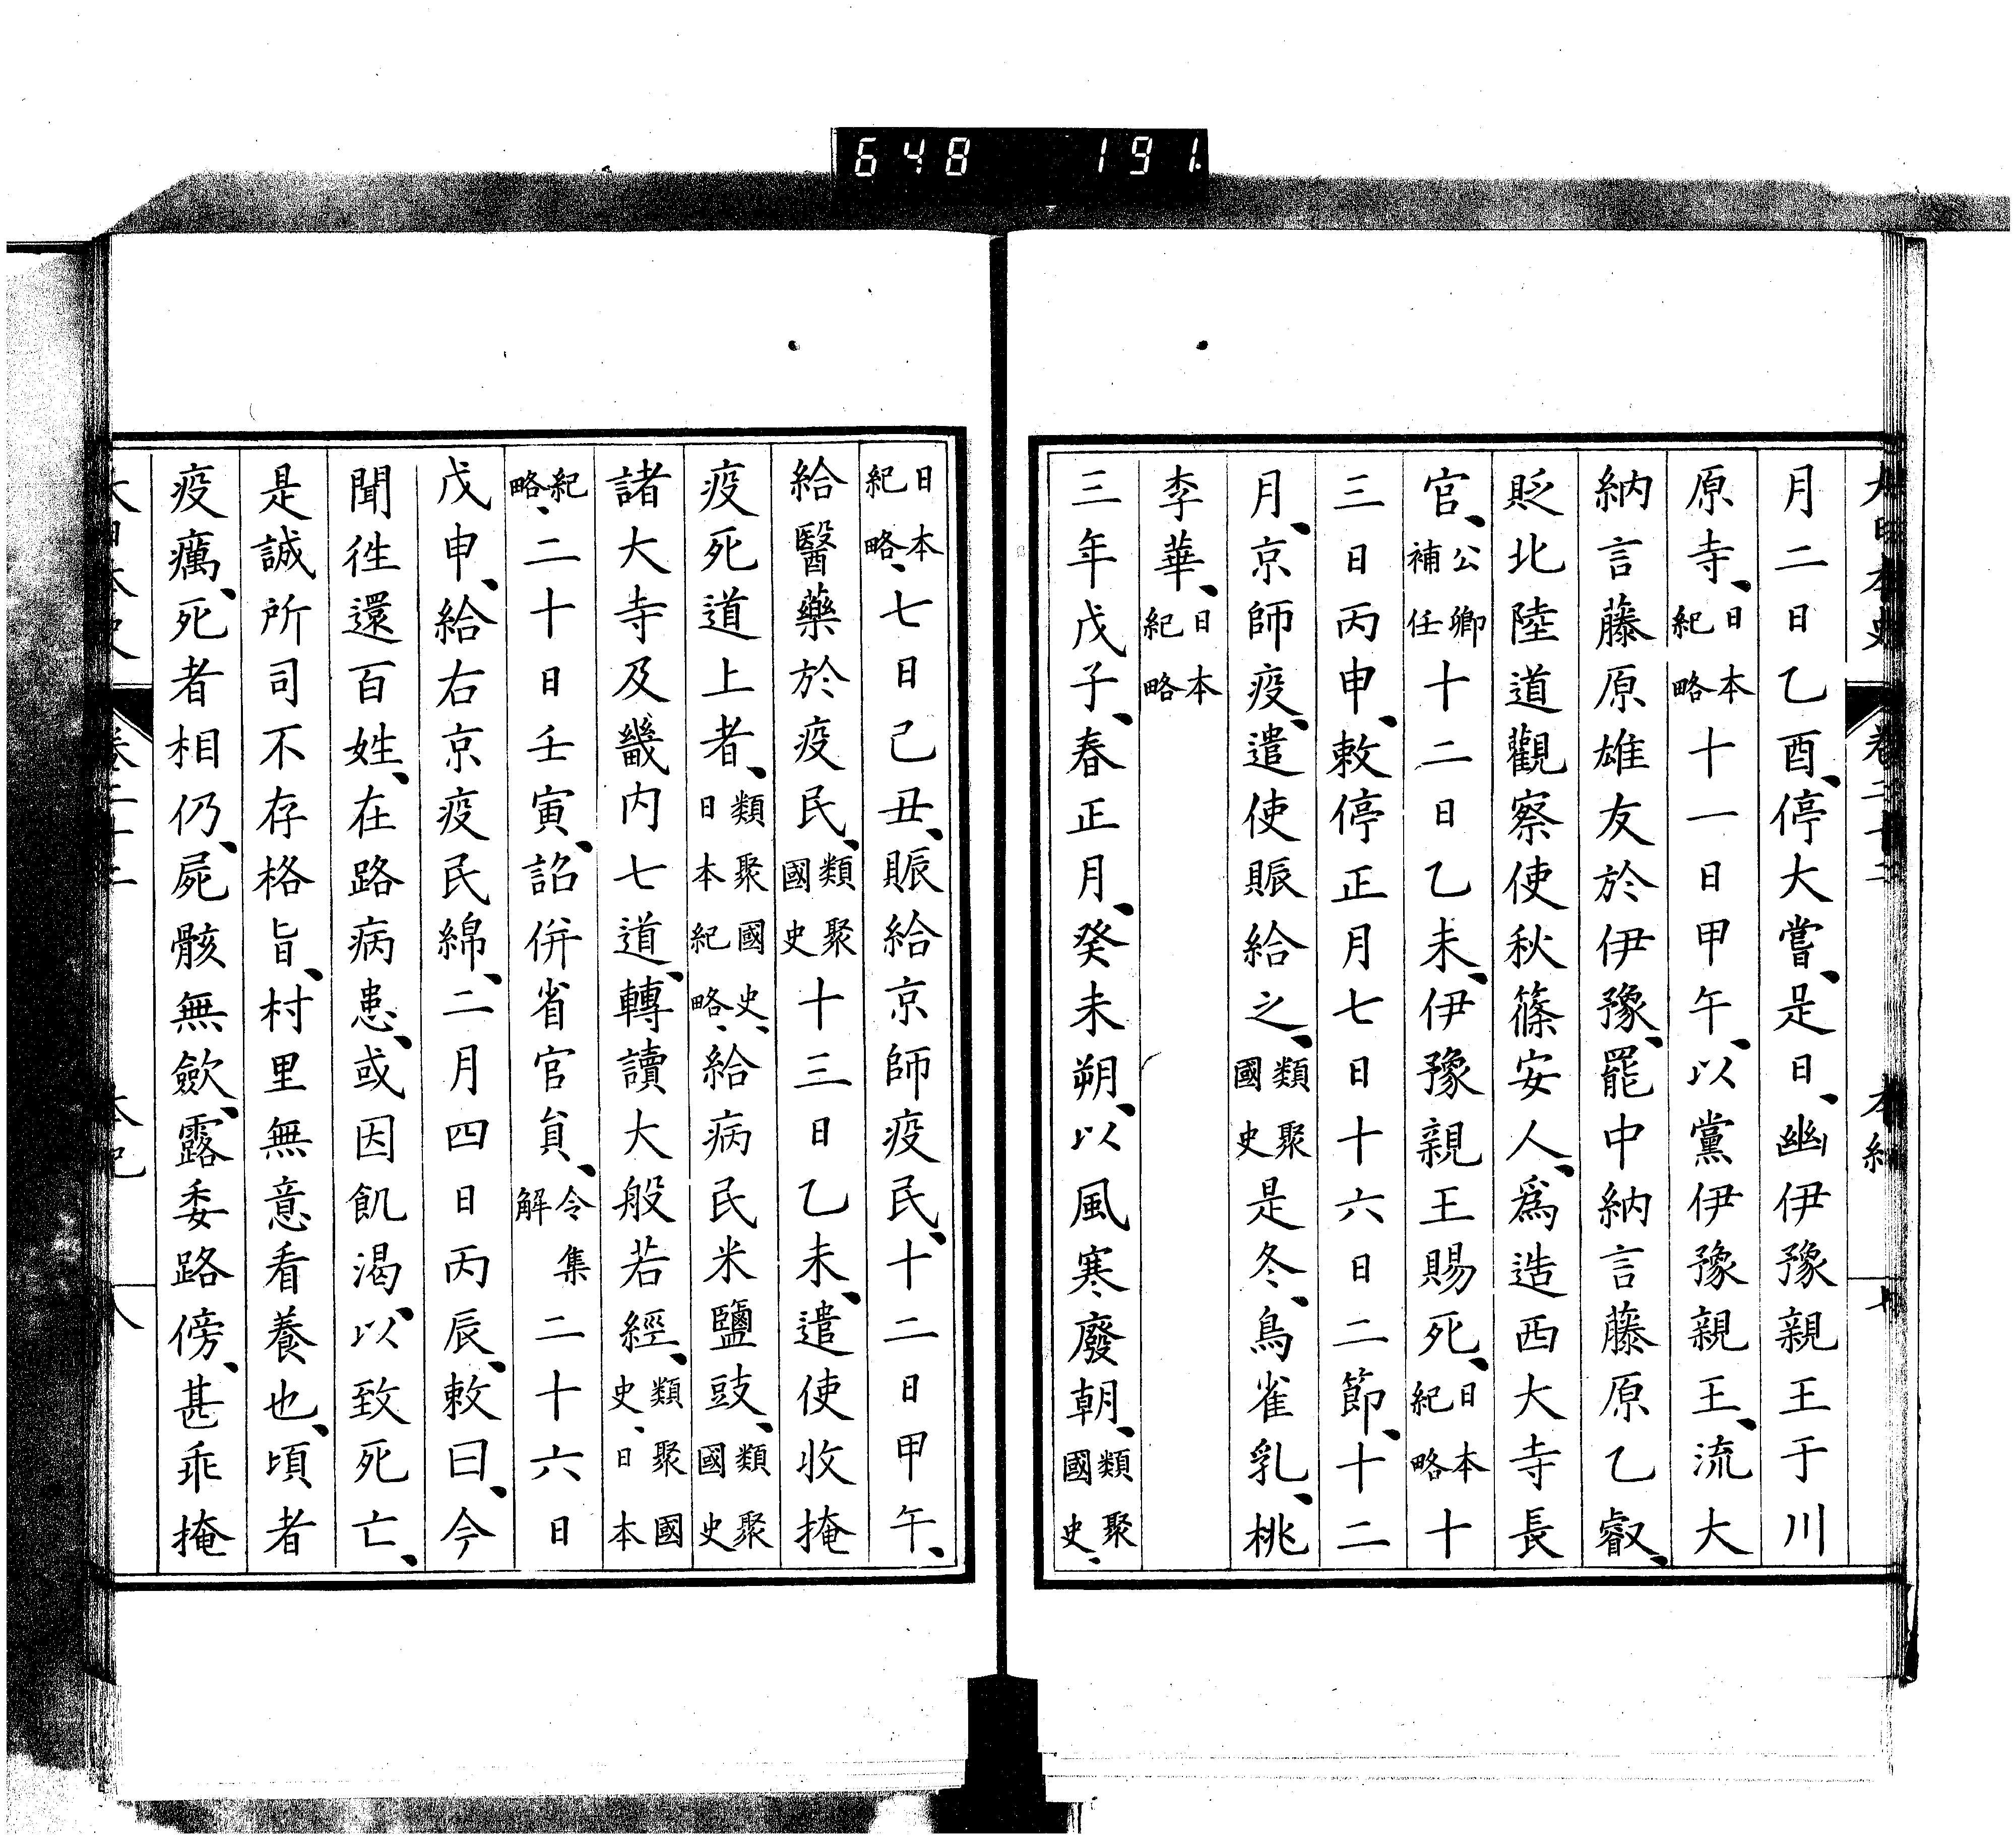 648 191
大日本史 卷二十二 本紀 七
月二日乙酉、停大嘗、是日、幽伊豫親王于川
原寺、日本紀略十一日甲午、以黨伊豫親王、流大
納言藤原雄友於伊豫、罷中納言藤原乙叡、
貶北陸道觀察使秋篠安人、爲造西大寺長
官、公卿補任十二日乙未、伊豫親王賜死、日本紀略十
三日丙申、敕停正月七日十六日二節、十二
月、京師疫、遣使賑給之、類聚國史是冬、鳥雀乳、桃
李華、日本紀略
三年戊子、春正月、癸未朔、以風寒廢朝、類聚國史、
日本紀略、七日己丑、賑給京師疫民、十二日甲午、
給醫藥於疫民、類聚國史十三日乙未、遣使收掩
疫死道上者、類聚國史、日本紀略、給病民米鹽豉、類聚國史
諸大寺及畿内七道、轉讀大般若經、類聚國史、日本
紀略、二十日壬寅、詔併省官員、令集解二十六日
戊申、給右京疫民綿、二月四日丙辰、敕曰、今
聞徃還百姓、在路病患、或因飢渴、以致死亡、
是誠所司不存格旨、村里無意看養也、頃者
疫癘、死者相仍、屍骸無斂、露委路傍、甚乖掩
大日本史 卷二十二 本紀 八